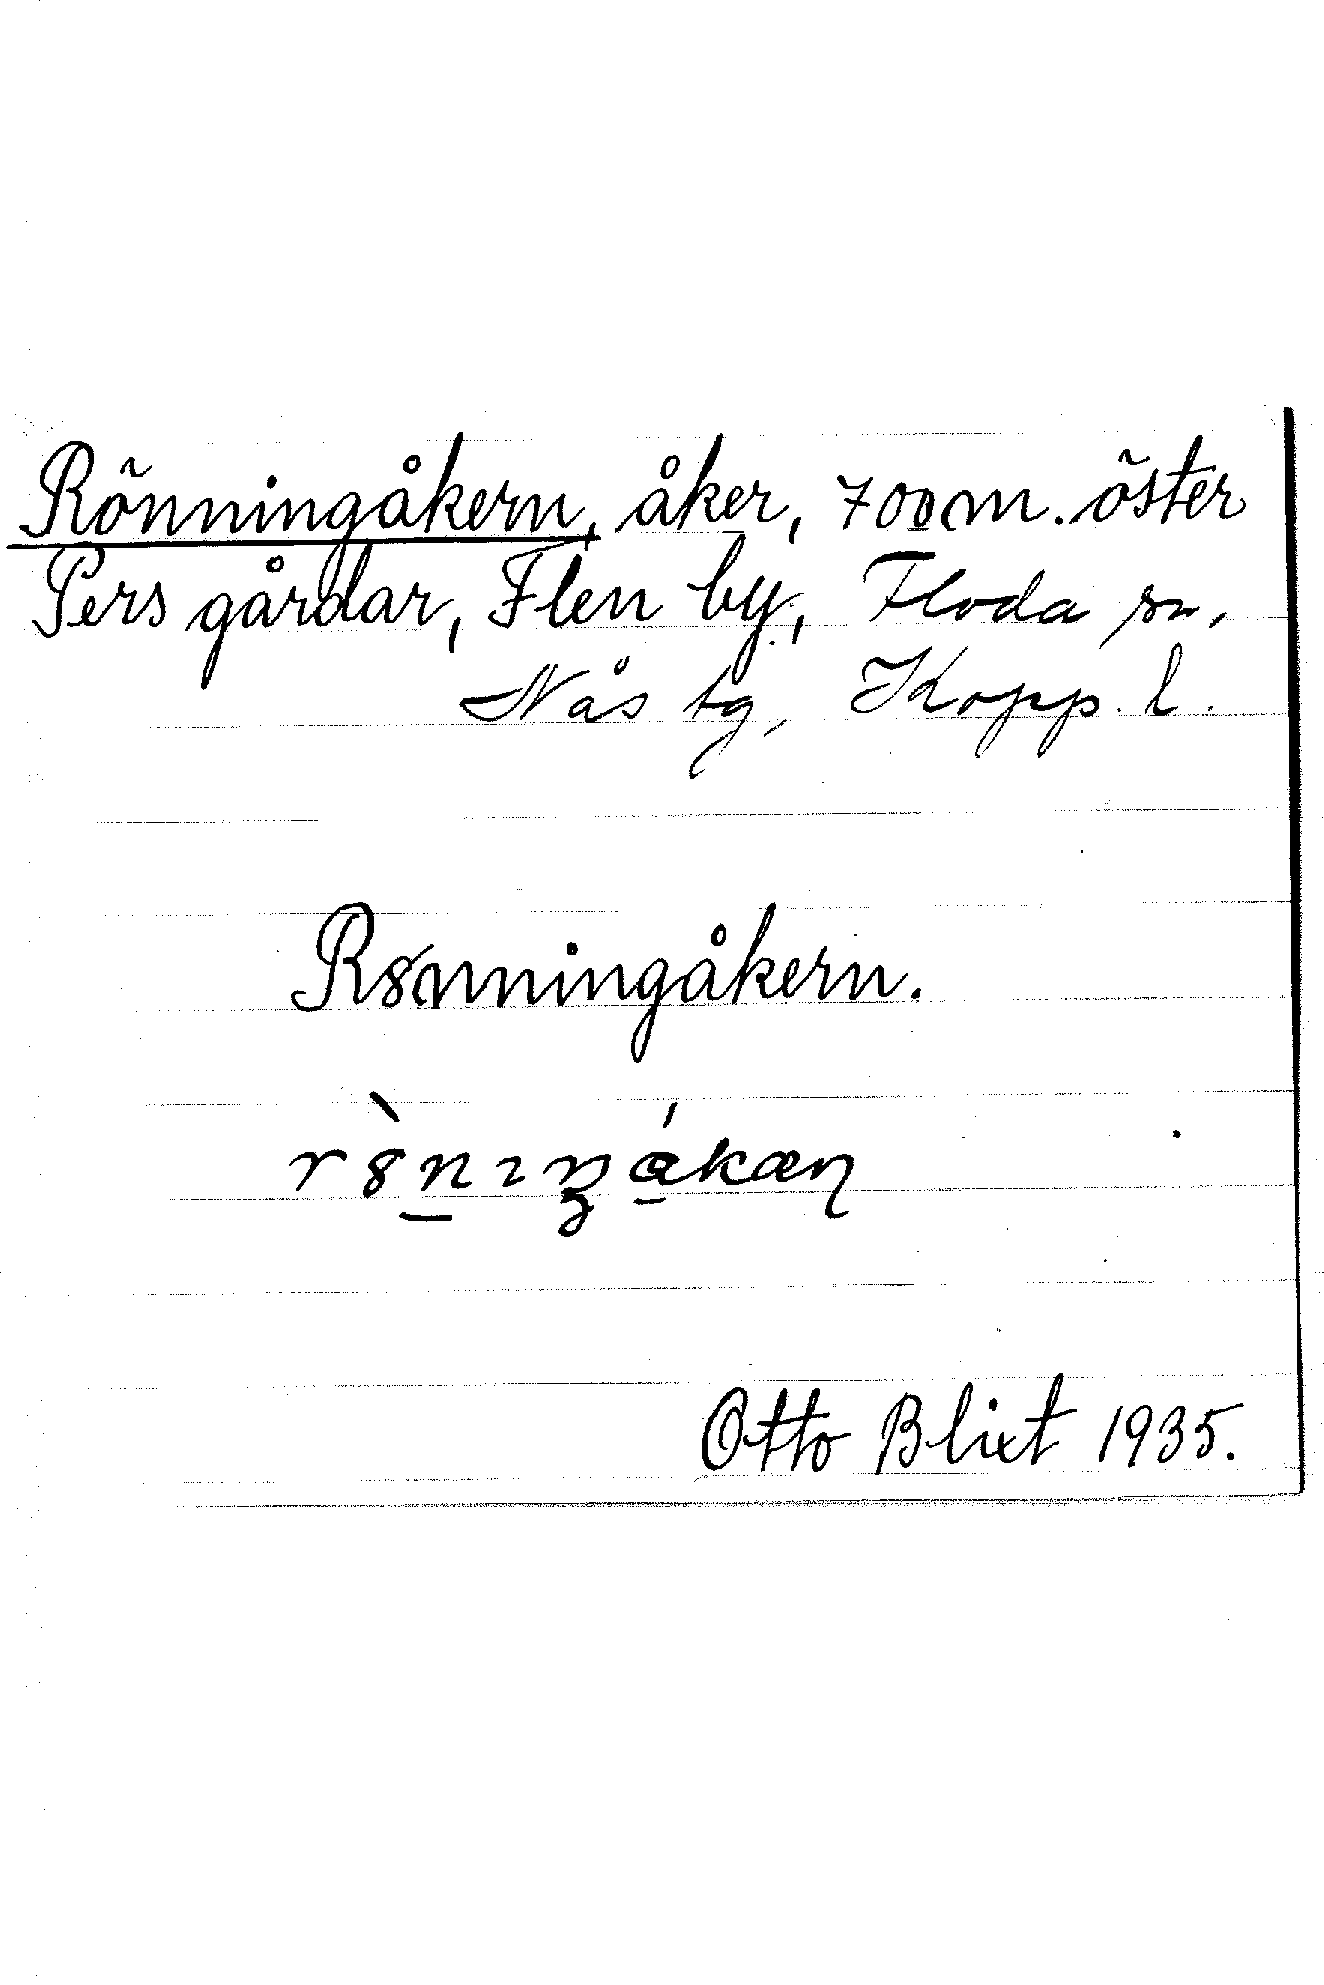 Rönningåkern, åker, 700 m. öster
Pers gårdar, Flen by, Floda sn,
Nås tg, Kopp. l.
Rȣnningåkern.
Otto Blixt 1935.